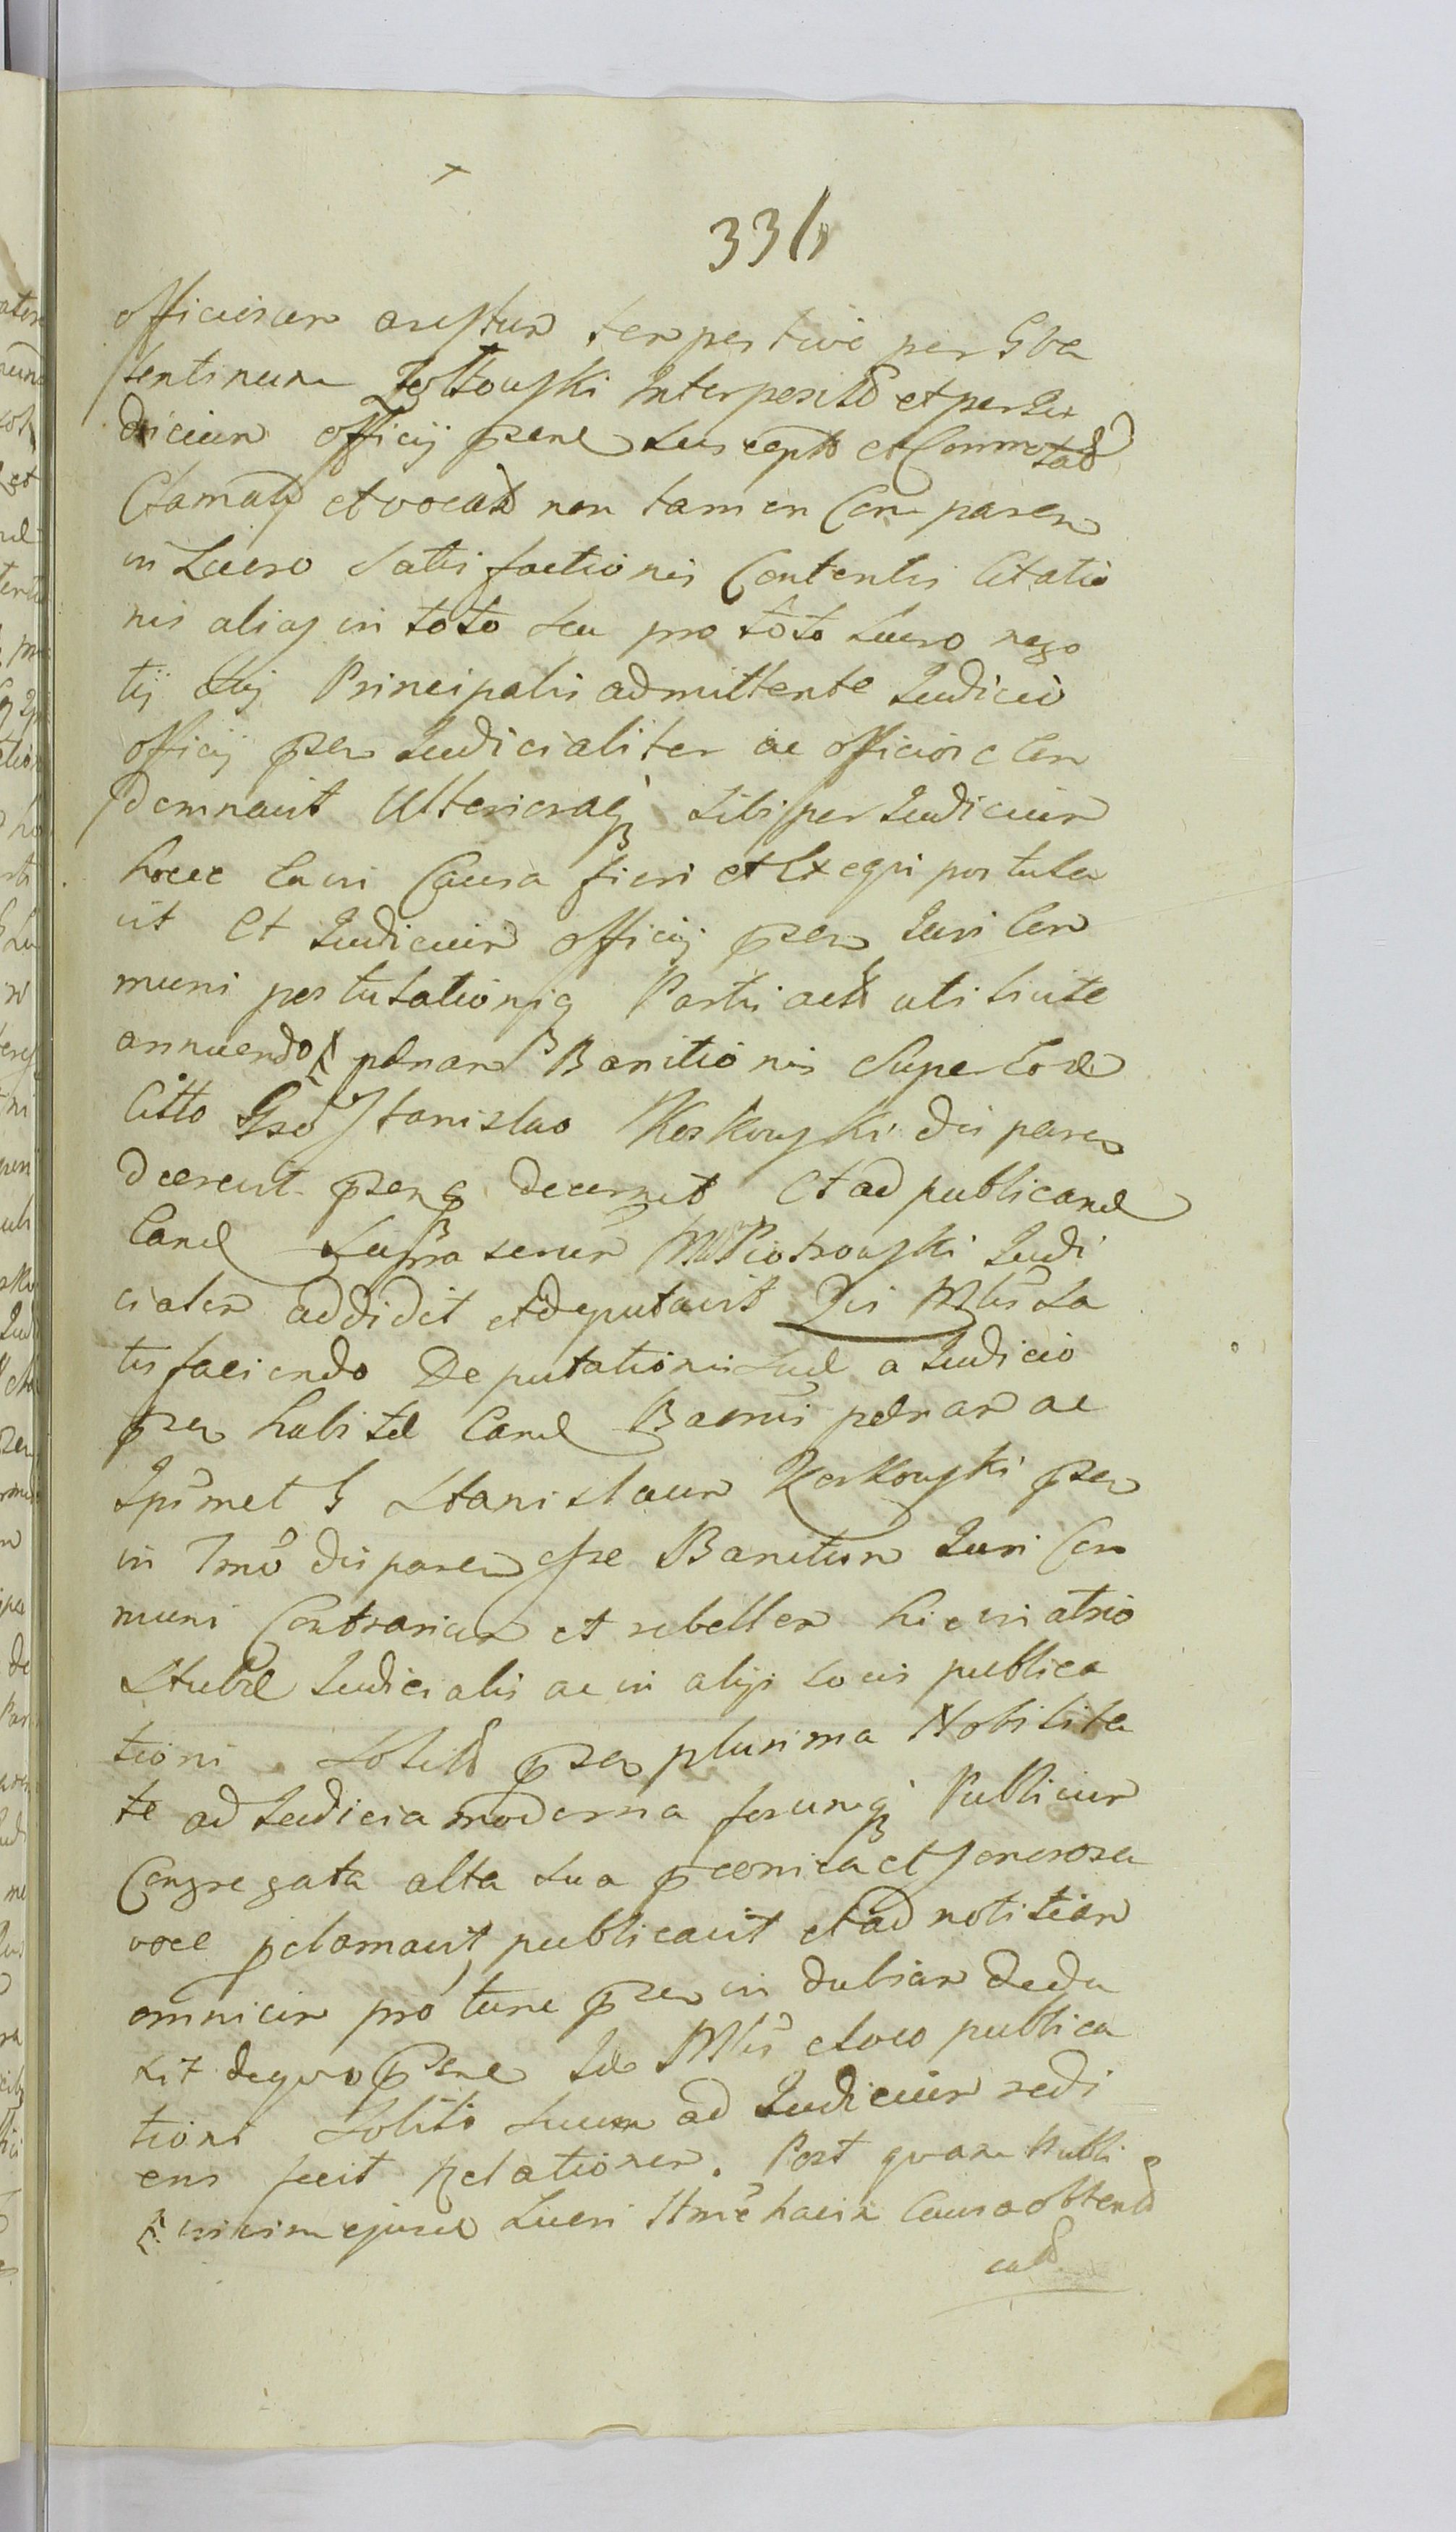 officiosam arestum tempestive per Gva
lentinum Zółtowski Interposito et per Ju
dicium officij psene suscepto et Connotad
Clamato et vocato non tamen Comparen
in Lucro satisfactionis Contentis Citatio
nis alias in toto seu pro toto Lucro nego
tij Sui Principalis admittente Judicio
officij psen Judicialiter ac officiose Con
demnavit Ulterioraq sibi per Judicium
hocce Eam in Causa fieri et Exequi postula
vit Et Judicium officij psen Juri Com
muni postulationiq Partis acto uti licite
annuendo pdnam Banitionis super Eod
Citto Gso Stanislao Koskowski dis paren
decrevit psenq decernit Et ad publicand
Eand supra senem Mn Piotrowski Judi
cialem addidit et deputavit Qui Mlis Sa
tisfaciendo Deputationi suae a Judicio
psen habitae Eand Banniis pdnam ac
Ipsimet G Stanislaum Koskowski psen
in Tmo disparen esse Banitum Juri Com
muni Contrarium et rebellem hic in atrio
Stubae Judicialis ac in alijs Locis publica
tioni solito psen plurima Nobilita
te ad Judicia moderna forumq Publicum
Congregata alta sua pconica et sonorosa
voce pclamavit publicavit et ad notitiam
omnium pro tunc psen in dubiam dedu
xit de quo psene Id Mlis e Loco publica
tioni solito suum ad Judicium redi
ens fecit Relationem. Post quam Publi
in vim ejusd Lucri Ttme hac in Causa obtend
cato